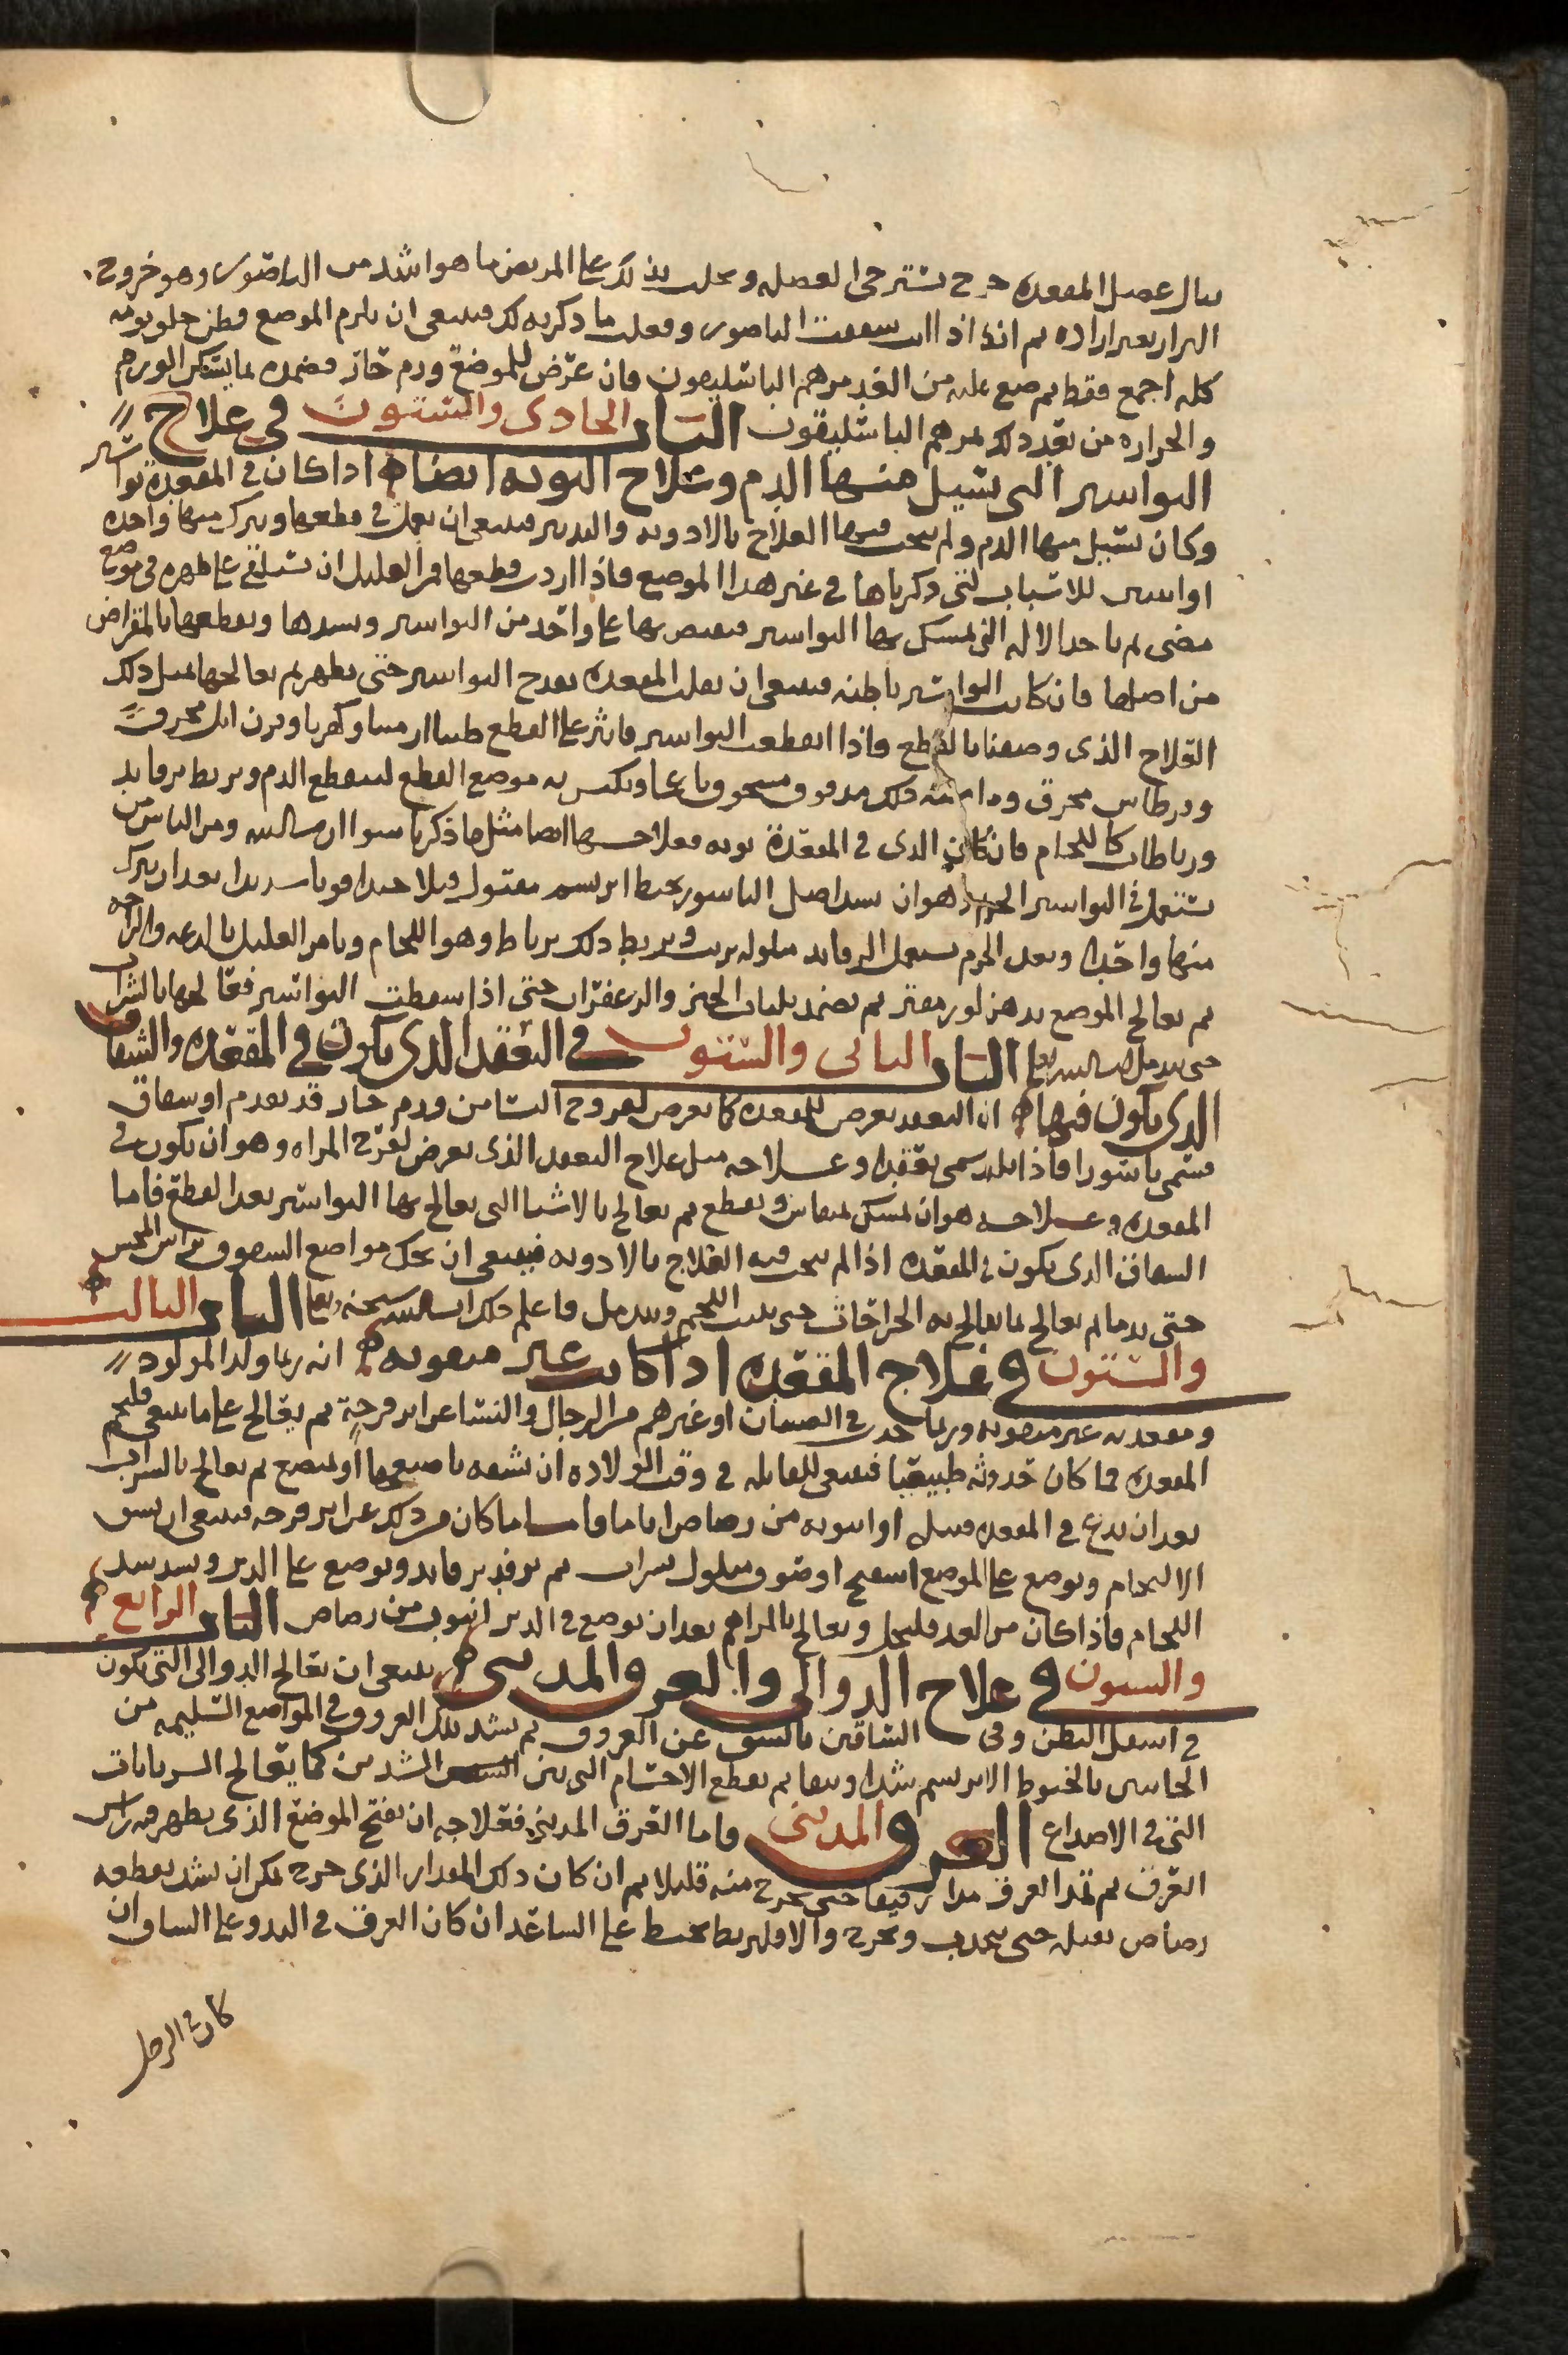 ينال عضل المقعدة جرح تسترخى العضله ويجلب بذلك على المريض ما هو اشد من الناصور وهو خروج
البراز بغير اراده ثم انك اذا انت سففت الناصور وفعلت ما ذكرته لك فينبغى ان يلزم الموضع قطن خلو يومه
كله اجمع فقط ثم ضع عليه من الغد مرهم الباسليقون فان عرض للموضع ورم حار فضمده بما يسكن الورم
والحراره من بعد ذلك بمرهم الباسليقون الباب الحادى والستون فى علاج
البواسير التى تسيل منها الدم وعلاج التوته ايضا اذا كان فى المقعدة بواسير
وكان تسيل منها الدم ولم ينجب فيها العلاج بالادويه والتدبير فينبغى ان يعمل فى قطعها ويترك منها واحده
او اثنين للاسباب التى ذكرناها فى غير هذا الموضع فاذا اردت قطعها فمر العليل ان يستلقى على ظهره فى موضع
مضى ثم ياخذ الاله التى يمسك بها البواسير فيقبض بها على واحد من البواسير ويمدها ويقطعها بالمقراض
من اصلها فان كانت البواسير باطنه فينبغى ان يقلب المقعده بقدح البواسير حتى يظهر ثم يعالجها بمثل ذلك
العلاج الذى وصفنا بالقطع فاذا انقطعت البواسير فانثر على القطع طينا ارمنيا وكهربا وقرن ايل محروق
وقرطاس محرق مدقوق مسحوق ناعما ويكبس به موضع القطع لينقطع الدم ويربط برفايد
ورباطات كاللجام فان كان الذى فى المقعدة توته فعلاجها ايضا مثل ما ذكرنا سوا ان شا الله ومن الناس من
يستعمل فى البواسير الخزم وهو ان يشد اصل الباسور بخيط ابريسم مفتول فتلا جيدا قويا شديدا بعد ان يترك
منها واحده وبعد الخزم يستعمل الرفايد مبلوله بزيت ويربط ذلك برباط وهو اللجام ويامر العليل بالدعه والراحه
ثم يعالج الموضع بدهن لوز مفتر ثم يضمد بلباب الخبز والزعفران حتى اذا سقطت البواسير فعالجها بالشراب
حتى يندمل ان شا الله تعالى الباب الثانى والستون فى التعقد الذى يكون فى المقعده والشقاق
الذى يكون فيها ان التعقد يعرض للمقعده كما يعرض لفروج النسا من ورم حار قد تقدم او شقاق
فتسمى باسورا فاذا ابلد سمى تعقدا وعلاجه مثل علاج التعقد الذى يعرض لفرج المراه وهو ان يكون فى
المقعده وعلاجه هو ان يمسك بمنقاش ويقطع ثم يعالج بالاشيا التى يعالج بها البواسير بعد القطع فاما
الشقاق الذى يكون فى المقعده اذا لم ينجب فيه العلاج بالادويه فينبغى ان يحك مواضع الشقوق براس المجس
حتى يدما ثم يعالج بما يعالج به الجراحات حتى ينبت اللحم ويندمل فاعلم ذلك ان شا الله سبحنه وتعا الباب الثالث
والستون فى علاج المقعده اذا كانت غير مثقوبه انه ربما ولد المولود
ومقعدته غير مثقوبه وربما حدث فى الصبيان او غيرهم من الرجال والنسا عن اثر قرحة ثم يعالج على ما ينبغى فيلتحم
المقعده فما كان حدوثه طبيعيا فينبغى للقابله فى وقت الولاده ان تشقه باصبعها او بمبضع ثم يعالج بالشراب
بعد ان يدع فى المقعده فتيله او انبوبه من رصاص اياما واما ما كان من ذلك عن اثر قرحه فينبغى ان يشق
الالتحام ويوضع على الموضع اسفنج او صوف مبلول بشراب ثم يرفد برفايد ويوضع على الدبر ويشد بشد
اللجام فاذا كان من الغد فليحل ويعالج بالمراهم بعد ان يوضع فى الدبر انبوب من رصاص الباب الرابع
والستون فى علاج الدوالى والعرق المدينى ينبغى ان تعالج الدوالى التى تكون
فى اسفل البطن وفى الساقين بالشق عن العروق ثم يشد تلك العروق فى المواضع السليمه من
الجانبين بالخيوط الابريسم شدا وثيقا ثم يقطع الاجسام التى بين الشدين كما يعالج الشريانات
التى فى الاصداغ العرق المدينى فاما العرق المدينى فعلاجه ان يفتح الموضع الذى يظهر فيه راس
العرق ثم تمد العرق مدا رفيقا حتى يخرج منه قليلا ثم ان كان ذلك المقدار الذى خرج يمكن ان يشد بقطعه
رصاص ثقيله حتى ينجذب ويخرج والا فليربط بخيط على الساعد ان كان العرق فى اليد وعلى الساق ان
كان فى الرجل